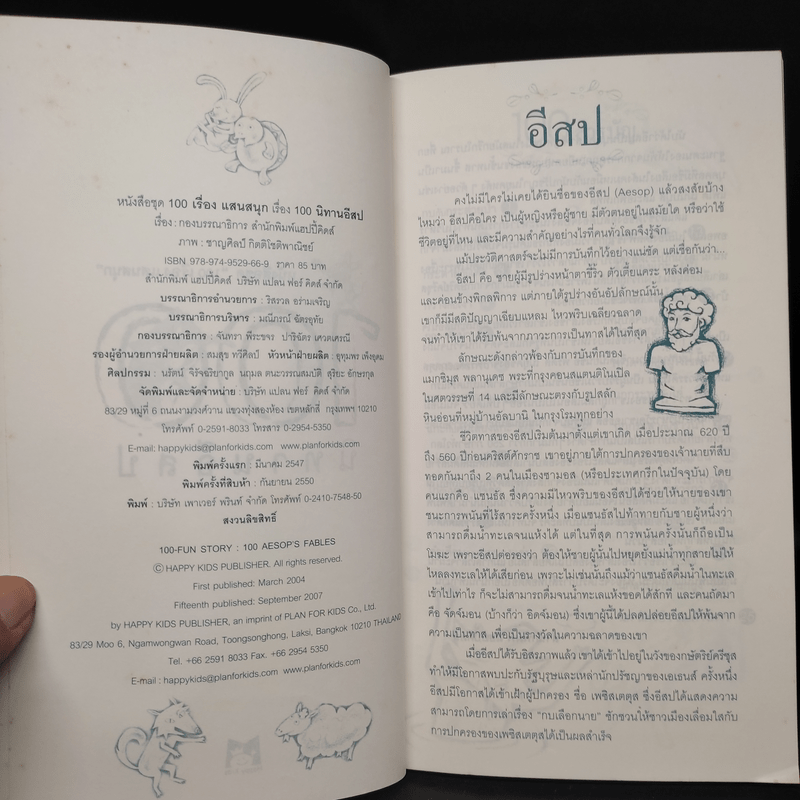 หนังสือชุด 100 เรื่อง แสนสนุก เรื่อง 100 นิทานอีสป
เรื่อง : กองบรรณาธิการ สำนักพิมพ์แฮปปี้คิดส์
ภาพ : ชาญศิลป์ กิตติโชติพาณิชย์
ISBN 978-974-9529-66-9 ราคา 85 บาท
สำนักพิมพ์ แฮปปี้คิดส์ บริษัท แปลน ฟอร์ คิดส์ จำกัด
บรรณาธิการอำนวยการ : ริสรวล อร่ามเจริญ
บรรณาธิการบริหาร : มณีภรณ์ ฉัตรอุทัย
กองบรรณาธิการ : จันทรา พีระขจร ปาริฉัตร เศวตเศรณี
รองผู้อำนวยการฝ่ายผลิต : สมสุข ทวีศิลป์ หัวหน้าฝ่ายผลิต : อุทุมพร เพ็งอุดม
ศิลปกรรม : นรัตน์ จิรัจฉริยากูล นฤมล ตนะวรรณสมบัติ สุริยะ อักษรกุล
จัดพิมพ์และจัดจำหน่าย : บริษัท แปลน ฟอร์ คิดส์ จำกัด
83/29 หมู่ที่ 6 ถนนงามวงศ์วาน แขวงทุ่งสองห้อง เขตหลักสี่ กรุงเทพฯ 10210
โทรศัพท์ 0-2591-8033 โทรสาร 0-2954-5350
E-mail: happykids@planforkids.com www.planforkids.com
พิมพ์ครั้งแรก : มีนาคม 2547
พิมพ์ครั้งที่สิบห้า : กันยายน 2550
พิมพ์ : บริษัท เพาเวอร์ พรินท์ จำกัด โทรศัพท์ 0-2410-7548-50
สงวนลิขสิทธิ์
100-FUN STORY : 100 AESOP'S FABLES
© HAPPY KIDS PUBLISHER. All rights reserved.
First published: March 2004
Fifteenth published: September 2007
by HAPPY KIDS PUBLISHER, an imprint of PLAN FOR KIDS Co., Ltd.
83/29 Moo 6, Ngamwongwan Road, Toongsonghong, Laksi, Bangkok 10210 THAILAND
Tel. +66 2591 8033 Fax. +66 2954 5350
E-mail : happykids@planforkids.com www.planforkids.com
อีสป
คงไม่มีใครไม่เคยได้ยินชื่อของอีสป (Aesop) แล้วสงสัยบ้าง
ไหมว่า อีสปคือใคร เป็นผู้หญิงหรือผู้ชาย มีตัวตนอยู่ในสมัยใด หรือว่าใช้
ชีวิตอยู่ที่ไหน และมีความสำคัญอย่างไรที่คนทั่วโลกจึงรู้จัก
แม้ประวัติศาสตร์จะไม่มีการบันทึกไว้อย่างแน่ชัด แต่เชื่อกันว่า...
อีสป คือ ชายผู้มีรูปร่างหน้าตาขี้ริ้ว ตัวเตี้ยแคระ หลังค่อม
และค่อนข้างพิกลพิการ แต่ภายใต้รูปร่างอันอัปลักษณ์นั้น
เขาก็มีมีสติปัญญาเฉียบแหลม ไหวพริบเฉลียวฉลาด
จนทำให้เขาได้รับพ้นจากภาวะการเป็นทาสได้ในที่สุด
ลักษณะดังกล่าวพ้องกับการบันทึกของ
แมกซิมุส พลานุเดซ พระที่กรุงคอนสแตนติโนเปิล
ในศตวรรษที่ 14 และมีลักษณะตรงกับรูปสลัก
หินอ่อนที่หมู่บ้านอัลบานี ในกรุงโรมทุกอย่าง
ชีวิตทาสของอีสปเริ่มต้นมาตั้งแต่เขาเกิด เมื่อประมาณ 620 ปี
ถึง 560 ปีก่อนคริสต์ศักราช เขาอยู่ภายใต้การปกครองของเจ้านายที่สืบ
ทอดกันมาถึง 2 คนในเมืองซามอส (หรือประเทศกรีกในปัจจุบัน) โดย
คนแรกคือ แซนธัส ซึ่งความมีไหวพริบของอีสปได้ช่วยให้นายของเขา
ชนะการพนันที่ไร้สาระครั้งหนึ่ง เมื่อแซนธัสไปท้าทายกับชายผู้หนึ่งว่า
สามารถดื่มน้ำทะเลจนแห้งได้ แต่ในที่สุด การพนันครั้งนั้นก็ถือเป็น
โมฆะ เพราะอีสปต่อรองว่า ต้องให้ชายผู้นั้นไปหยุดยั้งแม่น้ำทุกสายไม่ให้
ไหลลงทะเลให้ได้เสียก่อน เพราะไม่เช่นนั้นถึงแม้ว่าแซนธัสดื่มน้ำในทะเล
เข้าไปเท่าไร ก็จะไม่สามารถดื่มจนน้ำทะเลแห้งขอดได้สักที และคนถัดมา
คือ จัดจ์มอน (บ้างก็ว่า อิดจ์มอน) ซึ่งเขาผู้นี้ได้ปลดปล่อยอีสปให้พ้นจาก
ความเป็นทาส เพื่อเป็นรางวัลในความฉลาดของเขา
เมื่ออีสปได้รับอิสรภาพแล้ว เขาได้เข้าไปอยู่ในวังของกษัตริย์ครีซุส
ทำให้มีโอกาสพบปะกับรัฐบุรุษและเหล่านักปรัชญาของเอเธนส์ ครั้งหนึ่ง
อีสปมีโอกาสได้เข้าเฝ้าผู้ปกครอง ชื่อ เพซิสเตตุส ซึ่งอีสปได้แสดงความ
สามารถโดยการเล่าเรื่อง "กบเลือกนาย" ชักชวนให้ชาวเมืองเลื่อมใสกับ
การปกครองของเพซิสเตตุสได้เป็นผลสำเร็จ